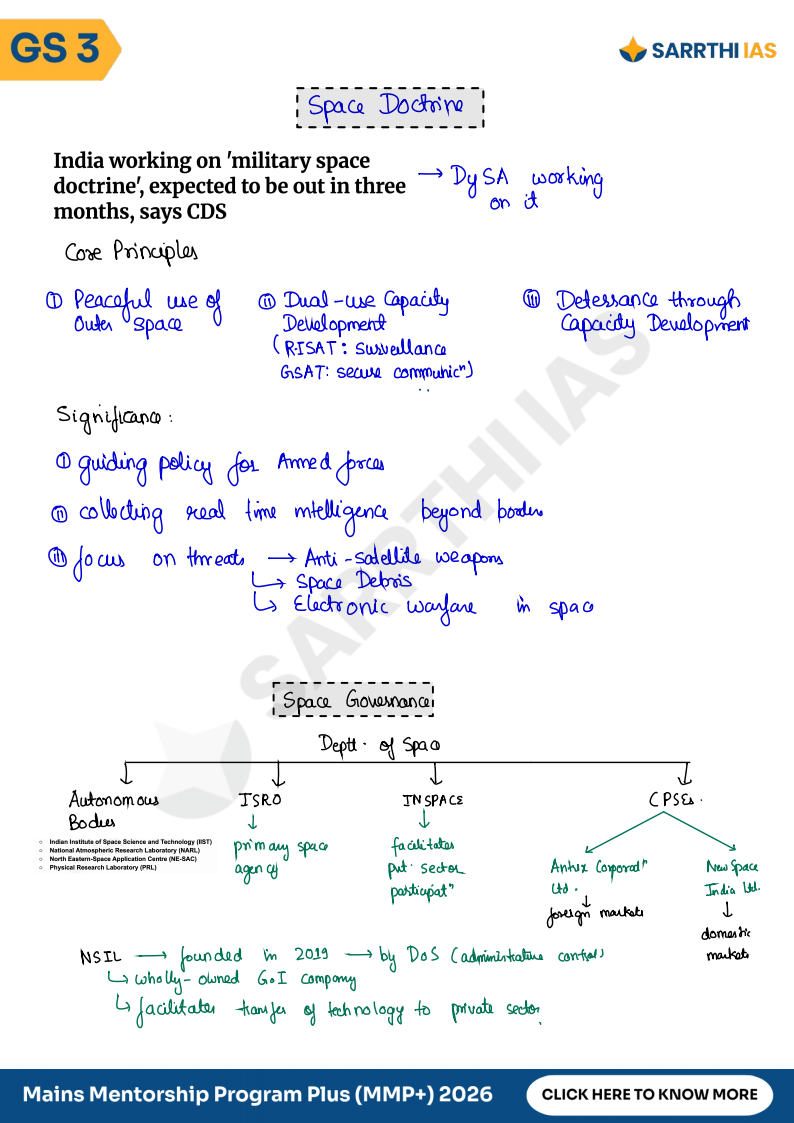 GS 3
SARRTHI IAS
Space Doctrine
India working on 'military space
doctrine', expected to be out in three
months, says CDS
→ DySA working
on it
Core Principles
① Peaceful use of
Outer Space
② Dual-use Capacity
Development
(RISAT: Surveillance
GSAT: secure communicⁿ)
③ Deterrance through
Capacity Development
Significance:
① guiding policy for Armed forces
② collecting real time intelligence beyond borders
③ focus on threats → Anti-satellite weapons
↳ Space Debris
↳ Electronic warfare in space
SARRTHI IAS
Space Governance
Deptt. of Space
Autonomous
Bodies
○ Indian Institute of Space Science and Technology (IIST)
○ National Atmospheric Research Laboratory (NARL)
○ North Eastern-Space Application Centre (NE-SAC)
○ Physical Research Laboratory (PRL)
ISRO
↓
primary space
agency
INSPACE
↓
facilitates
pvt. sector
participatⁿ
CPSEs.
Antrix Corporatⁿ
Ltd.
↓
foreign markets
New Space
India Ltd.
↓
domestic
markets
NSIL → founded in 2019 → by DoS (administrative control)
↳ wholly-owned GoI company
↳ facilitates transfer of technology to private sector.
Mains Mentorship Program Plus (MMP+) 2026
CLICK HERE TO KNOW MORE